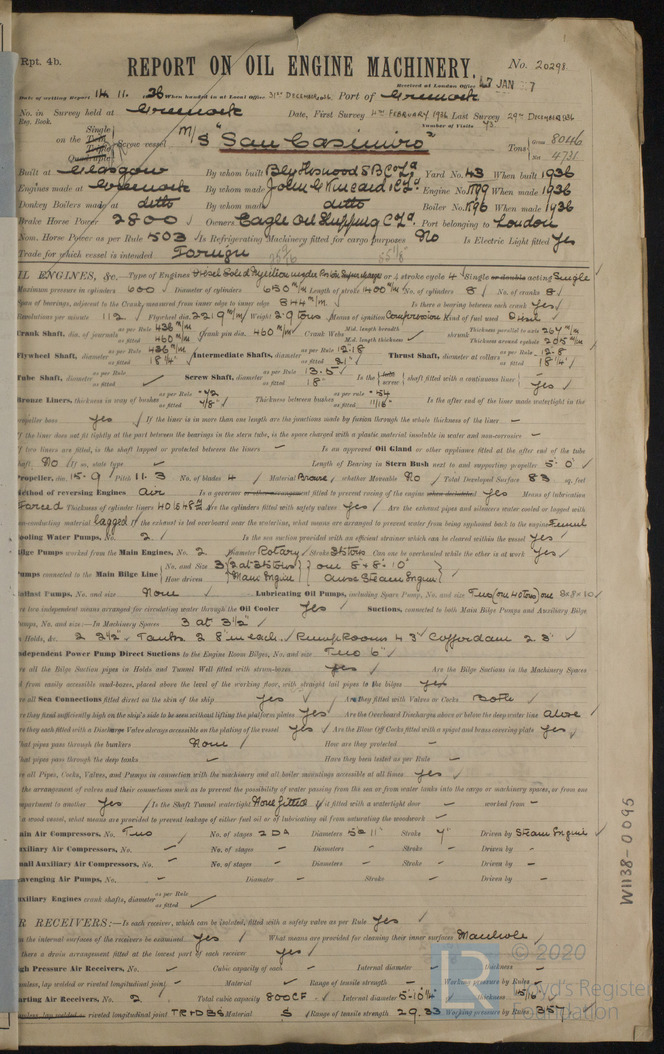 Rpt. 4b.
REPORT ON OIL ENGINE MACHINERY.
No. 20298
Received at London Office 7 JAN 7
Date of writing Report 14. 11. 36 When handed in at Local Office 31ST DECEMBER, 1936 Port of Greenock
No. in Survey held at Greenock Date, First Survey 4TH FEBRUARY 1936 Last Survey 29TH DECEMBER 1936
Reg. Book. Number of Visits 73
Single
on the Twin Screw vessel M/S "San Casimiro" Tons Gross 8046
Triple
Quadruple Net 4731
Built at Glasgow By whom built Blythswood S B Co Ld Yard No. 43 When built 1936
Engines made at Greenock By whom made John G Kincaid & Co Ld Engine No. K99 When made 1936
Donkey Boilers made at ditto By whom made ditto Boiler No. K96 When made 1936
Brake Horse Power 2800 Owners Eagle Oil Shipping Co Ld. Port belonging to London
Nom. Horse Power as per Rule 503 Is Refrigerating Machinery fitted for cargo purposes No Is Electric Light fitted Yes
Trade for which vessel is intended Foreign
OIL ENGINES, &c. Type of Engines 2 or 4 stroke cycle 4 Single or double acting Single
Maximum pressure in cylinders 600 Diameter of cylinders 650 m/m Length of stroke 1400 m/m No. of cylinders 8 No. of cranks 8
Span of bearings, adjacent to the Crank, measured from inner edge to inner edge 844 m/m Is there a bearing between each crank Yes
Revolutions per minute 112 Flywheel dia. 2219 m/m Weight 2.9 tons Means of ignition Compression Kind of fuel used Diesel
Crank Shaft, dia. of journals as per Rule 436 m/m as fitted 460 m/m Crank pin dia. 460 m/m Crank Webs Mid. length breadth Mid. length thickness shrunk Thickness parallel to axis 264 m/m Thickness around eyehole 205 m/m
Flywheel Shaft, diameter as per Rule 436 m/m as fitted 18 1/4" Intermediate Shafts, diameter as per Rule 12.18 as fitted Thrust Shaft, diameter at collars as per Rule 12.8 as fitted 18 1/4"
Tube Shaft, diameter as per Rule as fitted Screw Shaft, diameter as per Rule 13.5 as fitted 18" Is the screw shaft fitted with a continuous liner Yes
Bronze Liners, thickness in way of bushes as per Rule .72 as fitted 7/8" Thickness between bushes as per rule .54 as fitted 11/16" Is the after end of the liner made watertight in the
propeller boss yes If the liner is in more than one length are the junctions made by fusion through the whole thickness of the liner -
If the liner does not fit tightly at the part between the bearings in the stern tube, is the space charged with a plastic material insoluble in water and non-corrosive -
If two liners are fitted, is the shaft lapped or protected between the liners - Is an approved Oil Gland or other appliance fitted at the after end of the tube
shaft. No If so, state type - Length of Bearing in Stern Bush next to and supporting propeller 5' 0"
Propeller, dia. 15-9 Pitch 11.3 No. of blades 4 Material Bronze whether Moveable No Total Developed Surface 83 sq. feet
Method of reversing Engines Air Is a governor or other arrangement fitted to prevent racing of the engine when declutched yes Means of lubrication
Forced Thickness of cylinder liners Are the cylinders fitted with safety valves Yes Are the exhaust pipes and silencers water cooled or lagged with
non-conducting material lagged If the exhaust is led overboard near the waterline, what means are arranged to prevent water being syphoned back to the engine Funnel
Cooling Water Pumps, No. 2 Is the sea suction provided with an efficient strainer which can be cleared within the vessel Yes
Bilge Pumps worked from the Main Engines, No. 2 Diameter Rotary Stroke 35 tons Can one be overhauled while the other is at work Yes
Pumps connected to the Main Bilge Line No. and Size 3 (2 at 35 tons) one 8 x 8 x 10"
How driven Main Engine One Steam Engine
Ballast Pumps, No. and size None Lubricating Oil Pumps, including Spare Pump, No. and size Two (one 40 tons) one 8x8x10
Are two independent means arranged for circulating water through the Oil Cooler Yes Suctions, connected to both Main Bilge Pumps and Auxiliary Bilge
Pumps, No. and size:—In Machinery Spaces 3 at 3 1/2"
In Holds, &c. 2 2 1/2" Tanks 2 8" in each Pump Rooms 4 3" Cofferdam 2.3"
Independent Power Pump Direct Suctions to the Engine Room Bilges, No. and size Two 6"
Are all the Bilge Suction pipes in Holds and Tunnel Well fitted with strum-boxes Yes Are the Bilge Suctions in the Machinery Spaces
led from easily accessible mud-boxes, placed above the level of the working floor, with straight tail pipes to the bilges yes
Are all Sea Connections fitted direct on the skin of the ship Yes Are they fitted with Valves or Cocks Both
Are they fixed sufficiently high on the ship's side to be seen without lifting the platform plates Yes Are the Overboard Discharges above or below the deep water line Above
Are they each fitted with a Discharge Valve always accessible on the plating of the vessel Yes Are the Blow Off Cocks fitted with a spigot and brass covering plate Yes
What pipes pass through the bunkers None How are they protected -
What pipes pass through the deep tanks - Have they been tested as per Rule -
Are all Pipes, Cocks, Valves, and Pumps in connection with the machinery and all boiler mountings accessible at all times Yes
Is the arrangement of valves and their connections such as to prevent the possibility of water passing from the sea or from water tanks into the cargo or machinery spaces, or from one
compartment to another Yes Is the Shaft Tunnel watertight None fitted Is it fitted with a watertight door - worked from -
If a wood vessel, what means are provided to prevent leakage of either fuel oil or of lubricating oil from saturating the woodwork -
Main Air Compressors, No. Two No. of stages 2 DA Diameters Stroke 7" Driven by Steam Engine
Auxiliary Air Compressors, No. - No. of stages - Diameters - Stroke - Driven by -
Small Auxiliary Air Compressors, No. - No. of stages - Diameters - Stroke - Driven by -
Scavenging Air Pumps, No. - Diameter - Stroke - Driven by -
Auxiliary Engines crank shafts, diameter as per Rule as fitted
AIR RECEIVERS:—Is each receiver, which can be isolated, fitted with a safety valve as per Rule Yes
Can the internal surfaces of the receivers be examined Yes What means are provided for cleaning their inner surfaces Manhole
Is there a drain arrangement fitted at the lowest part of each receiver Yes
High Pressure Air Receivers, No. - Cubic capacity of each - Internal diameter - thickness -
Seamless, lap welded or riveted longitudinal joint - Material - Range of tensile strength - Working pressure by Rules -
Starting Air Receivers, No. 2 Total cubic capacity 800 CF Internal diameter thickness 15/16
Seamless, lap welded or riveted longitudinal joint TR+DBS Material S Range of tensile strength 29.33 Working pressure by Rules 357
W1138-0095
© 2020
Lloyd's Register
Foundation